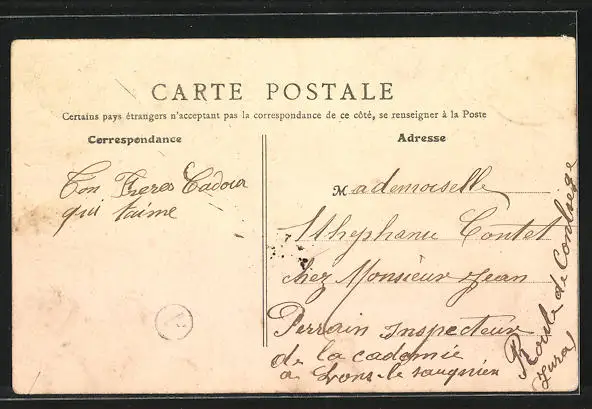 CARTE POSTALE
Certains pays étrangers n'acceptant pas la correspondance de ce côté, se renseigner à la Poste
Correspondance
Ton Freres Cadoux
qui t'aime
Adresse
Mademoiselle
Sthephanie Contet
chez Monsieur Jean
Perrain Inspecteur
de la cadomie
a Lons-le saugnien
Route de Conliege
(Jura)